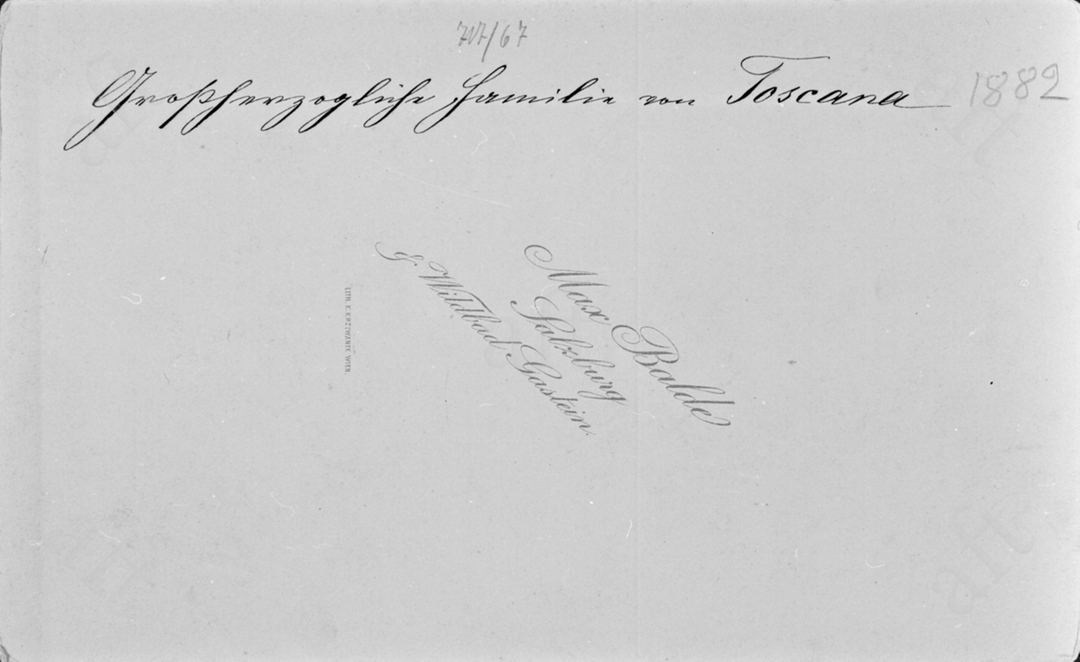 717/67
Großherzogliche Familie von Toscana 1882
Max Balde
Salzburg
& Wildbad Gastein.
LITH. WIEN